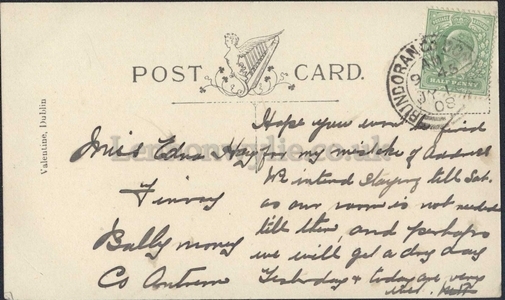 POST CARD.
Valentine, Dublin
BUNDORAN
9 AM
JY
08
HALF PENNY
Lennonwylie.co.uk
Miss Edna Hay
Finvoy
Ballymoney
Co Antrim
Hope you won't mind
for my mistake of address
We intend staying till Sat.
as our room is not needed
till then, and perhaps
we will get a dry day
Yesterday & today are very
wet.